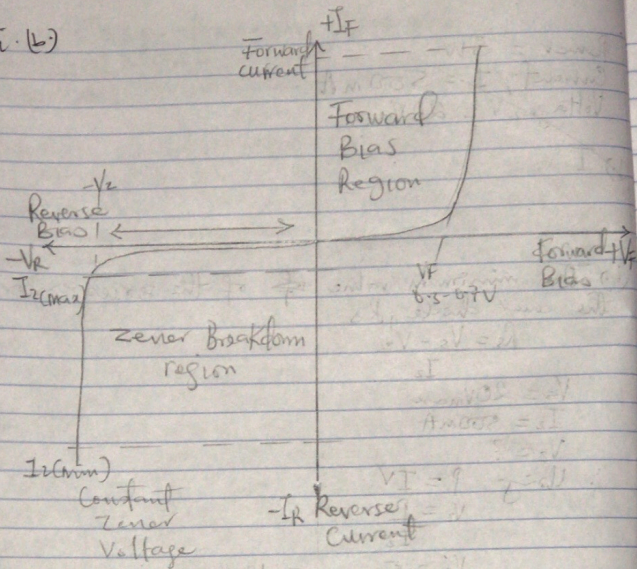 i.(b)
+IF
Forward
current
Forward
Bias
Region
-Vz
Reverse
Bias
-VR
Forward+VF
Bias
VF
0.3-0.7V
Iz(max)
Zener Breakdown
region
Iz(min)
Constant
Zener
Voltage
-IR Reverse
Current